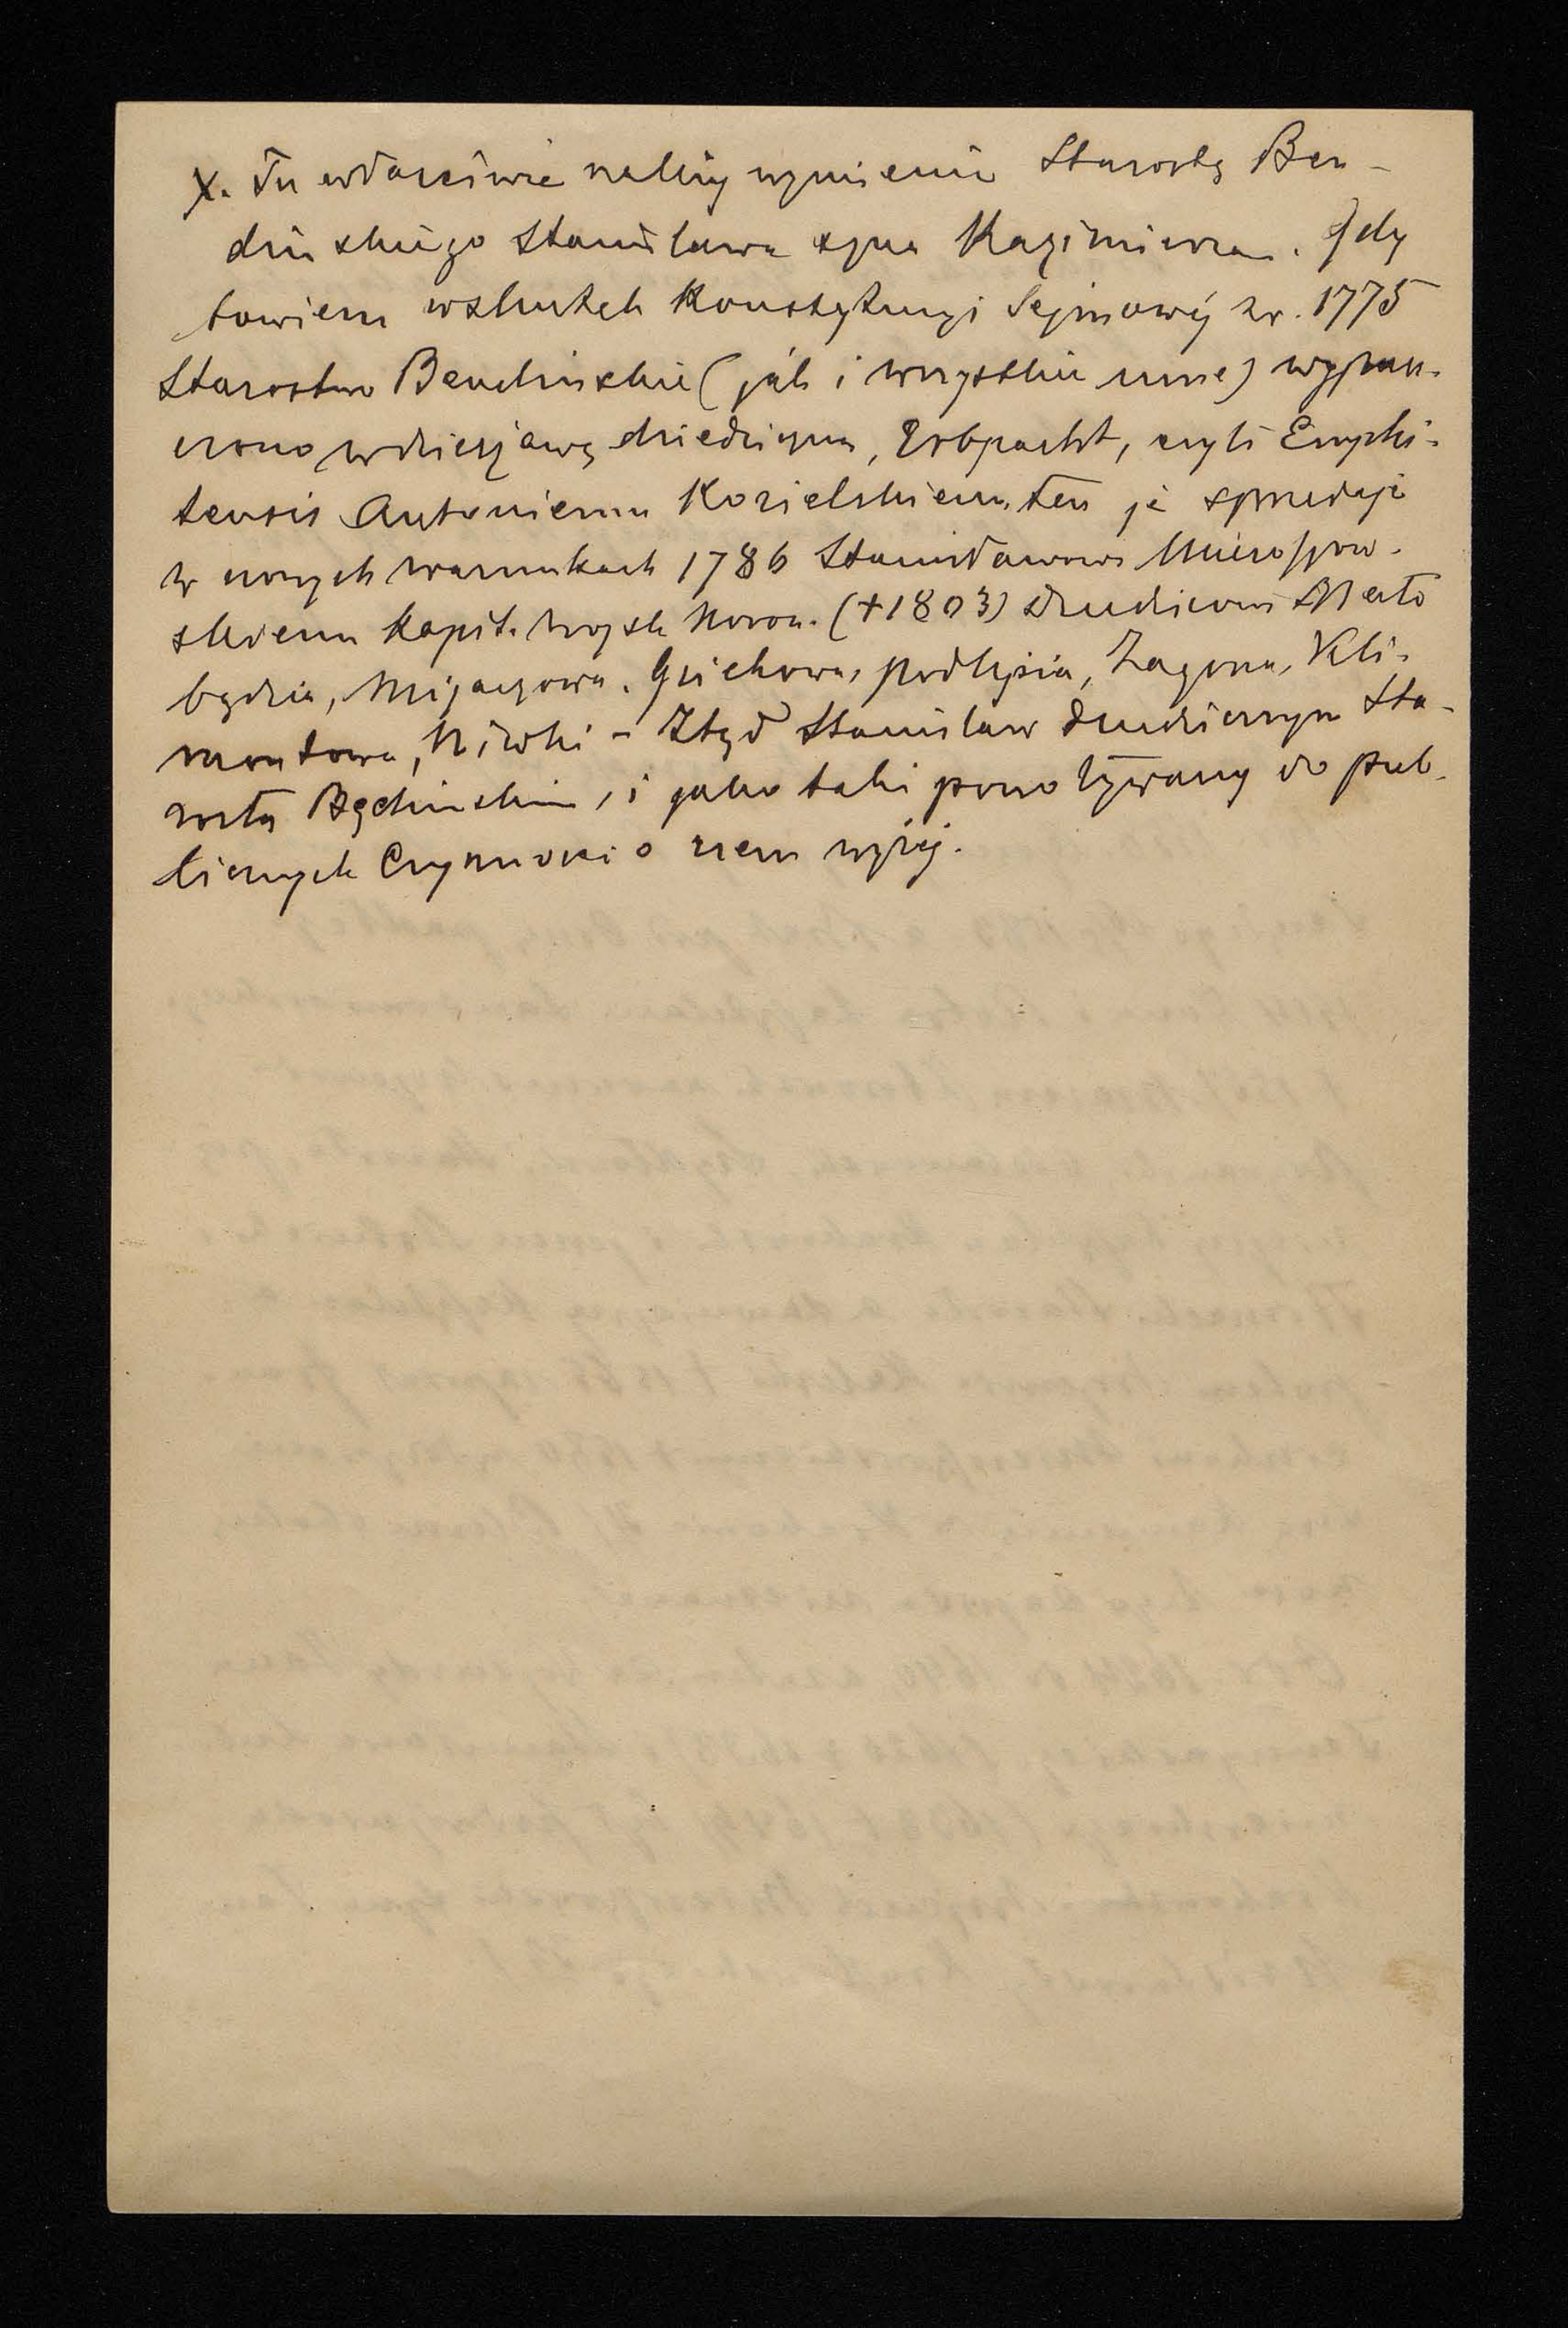 X. Tu właściwie należy wymienić Starostę Ben-
dińskiego Stanisława syna Kazimierza. Gdy
bowiem wskutek Konstytucyi Sejmowéj z r. 1775
Starostwo Bendińskie (jak i wszystkie inne) wypusz-
czono w dzierżawę dziedziczną, Erbpacht, czyli Emphi-
teusis Antoniemu Kozielskiemu, ten je sprzedaje
w warunkach 1786 Stanisławowi Mieroszow-
skiemu Kapit. Wojsk Koron. (+1803) dziedzicowi
będzia, Mijaczowa, Gzichowa, Podłęzia, Zagórza, Kli-
montowa, Niwki - Ztąd Stanisław dziedzicznym Sta-
rostą Będzińskim, i jako taki powoływany do pub-
licznych Czynności o czem wyżej.